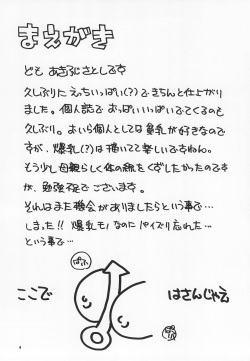 まえがき
ども あきふじさとしです
久しぶりに えっちいっぱい(?)で きちんと仕上がり
ました。個人誌で おっぱいいっぱいでてくるのも
久しぶり。おいら個人としては 貧乳が好きなので
すが、爆乳(?)は描いてて楽しいですねん。
もう少し母親らしく体の線をくずしたかったのです
が、勉強不足で ございます。
それはまた機会がありましたらという事で…
しまった!! 爆乳モノなのに パイズリ忘れた…
という事で…
ぱふ
ここで
はさんじゃえ
4